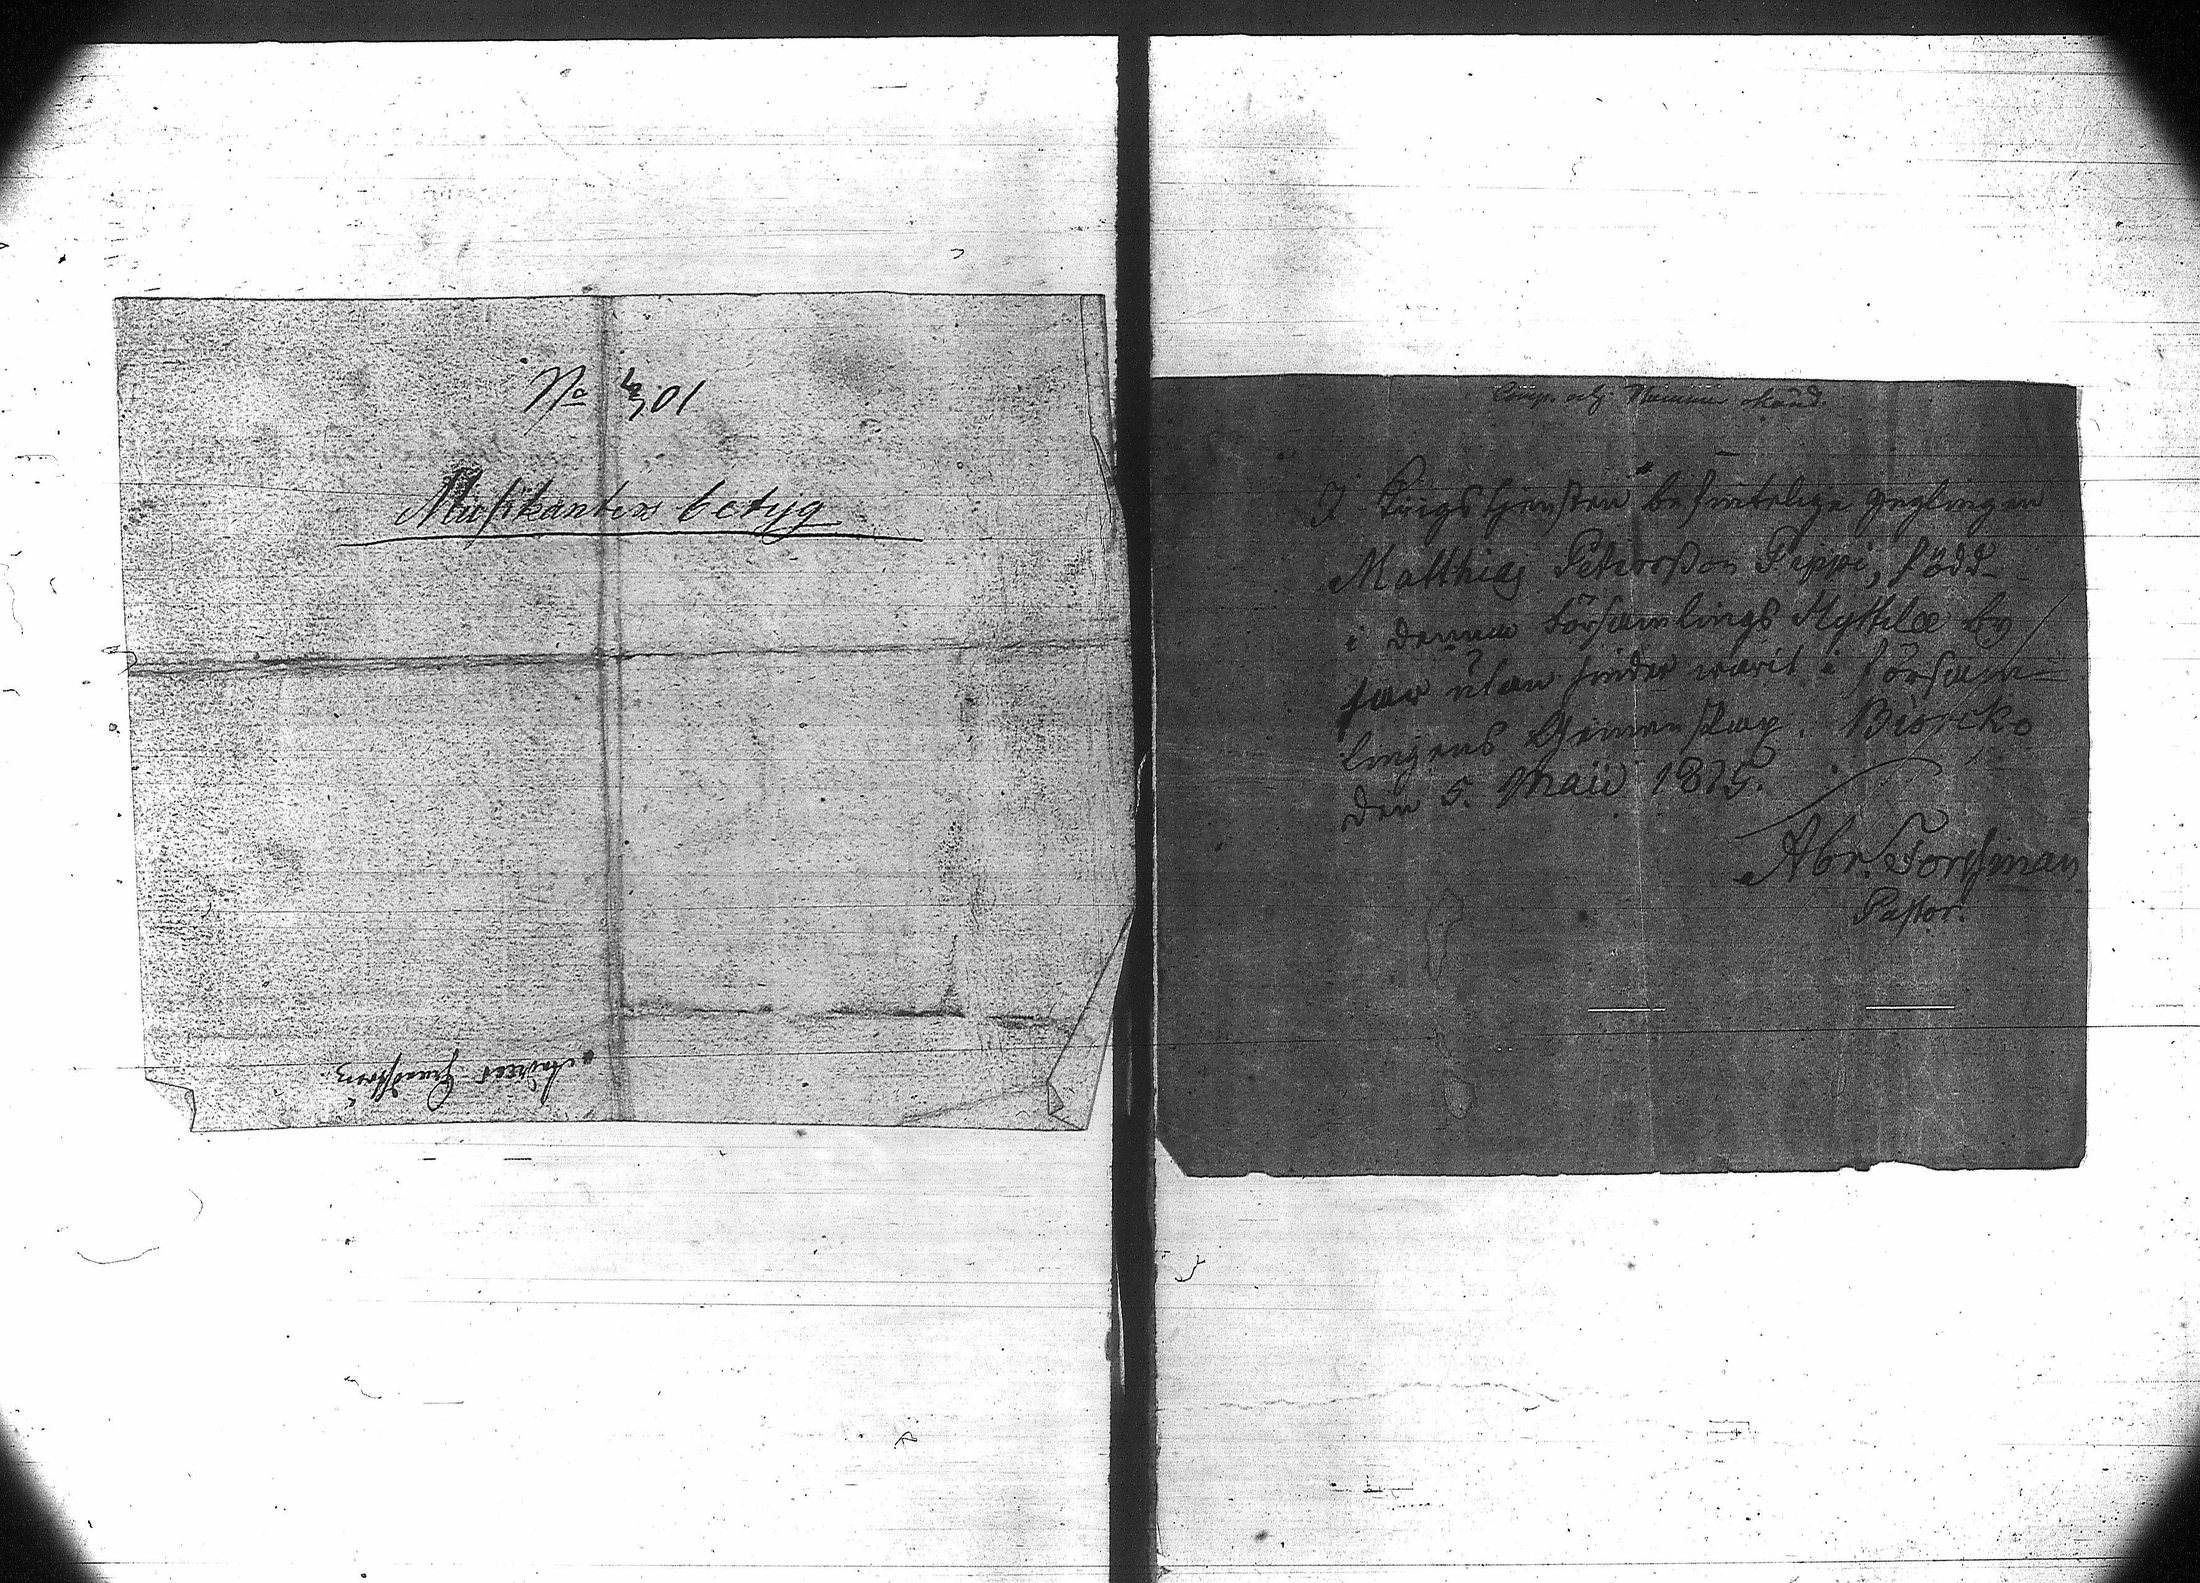 No 301
Musikantens betyg
Andreas
I Krigstjensten befintelige ynglingen
Matthias Petersson Peppi, född
i denna Församlings Kyttilæ by
har utan hinder warit i försam=
lingens Gemenskap. Biörckö
den 5. Maii 1815.
Abr. Forssman
Pastor.